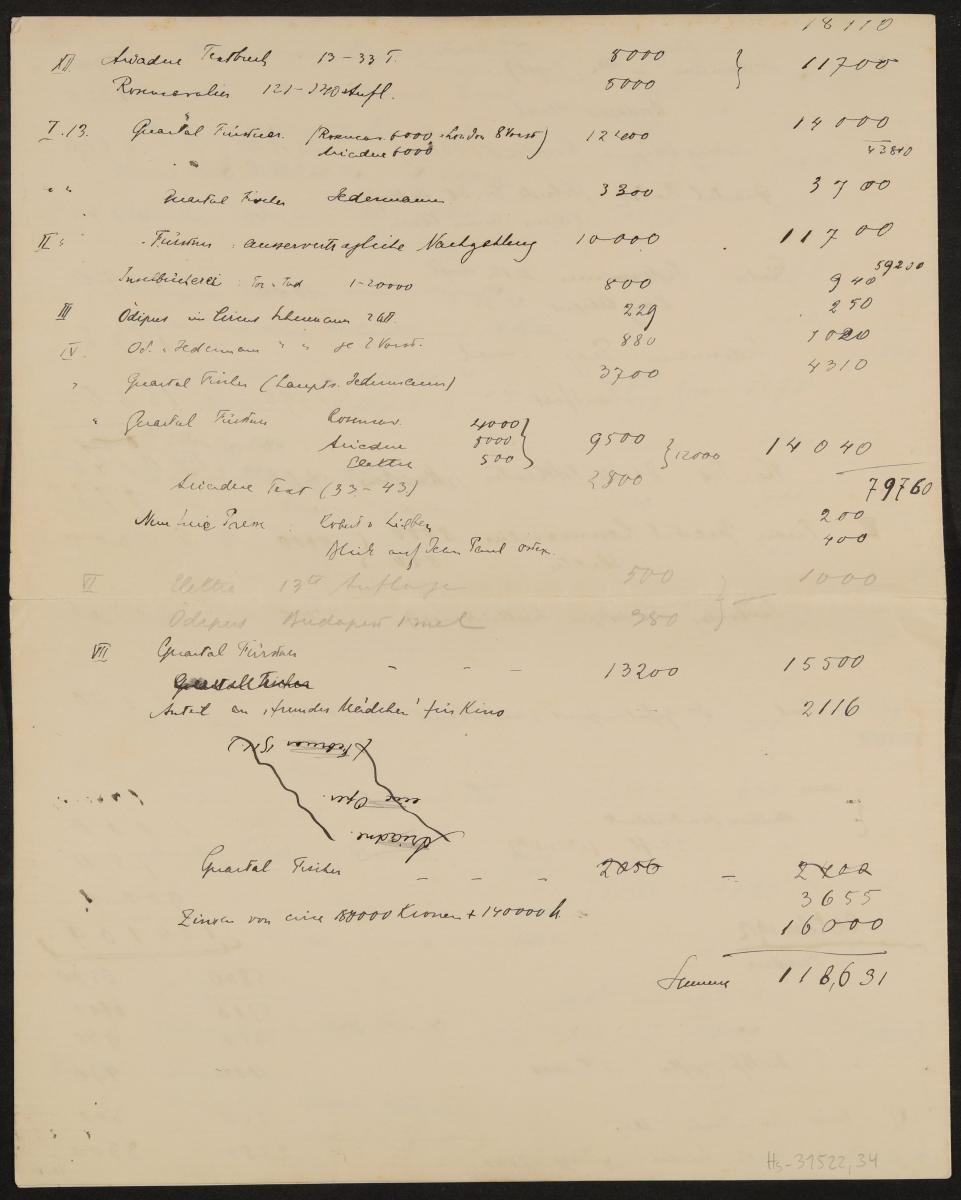 18110
XII. Ariadne Textbuch 13–33 T. 8000 } 11700
Rosencavalier 121– Aufl. 5000
I.13. Quartal Fürstner. (Rosencav. 6000, London 8 Vorst) 12000 14000
Ariadne 6000 43810
" " Quartal Fischer Jedermann 3300 3700
II " Fürstner: ausservertragliche Nachzahlung 10000 11700
59200
Inselbücherei: Tor u Tod 1–20000 800 940
III Ödipus im Circus 2 229 250
IV. Öd. u Jedermann " " je 2 Vorst. 880 1020
" Quartal Fischer (haupts. Jedermann) 3700 4310
" Quartal Fürstner Rosencav. 4000
Ariadne 5000 } 9500 } 12000 14040
Elektra 500
Ariadne Text (33–43) 2800 79760
Neue freie Presse: Robert v Lieben 200
Blick auf Jean Paul 400
VI Elektra 13te Auflage 500 } – 1000
Ödipus Budapest 380
VII Quartal Fürstner – – – 13200 15500
Quartal Fischer
Anteil an „fremdes Mädchen" für Kino 2116
eine Oper.
Ariadne.
Quartal Fischer – – – 2050 – 2400
3655
Zinsen von circa 80000 Kronen + 140000 16000
Summe 118,631
Hs-31522,34